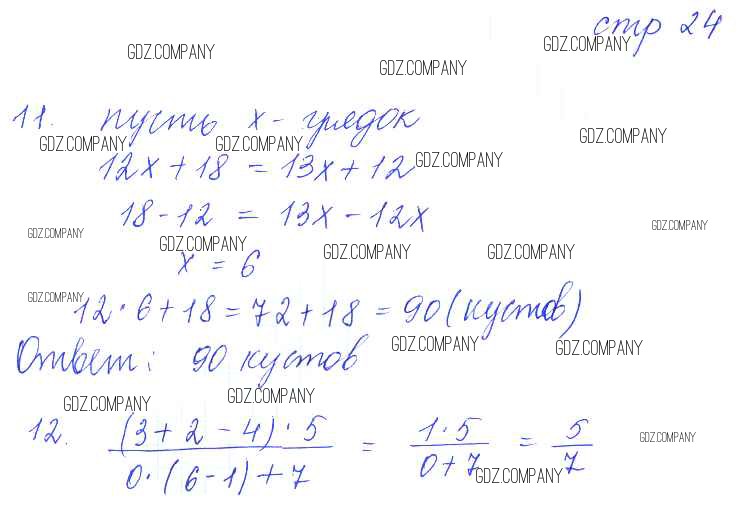 стр 24
GDZ.COMPANY GDZ.COMPANY GDZ.COMPANY
11. пусть x - грядок
GDZ.COMPANY GDZ.COMPANY GDZ.COMPANY
12x + 18 = 13x + 12 GDZ.COMPANY
18 - 12 = 13x - 12x GDZ.COMPANY
GDZ.COMPANY GDZ.COMPANY GDZ.COMPANY GDZ.COMPANY
x = 6
GDZ.COMPANY
12 · 6 + 18 = 72 + 18 = 90 (кустов)
GDZ.COMPANY GDZ.COMPANY
Ответ: 90 кустов
GDZ.COMPANY GDZ.COMPANY
12. (3 + 2 - 4) · 5 / 0 · (6 - 1) + 7 = 1 · 5 / 0 + 7 = 5 / 7 GDZ.COMPANY
GDZ.COMPANY